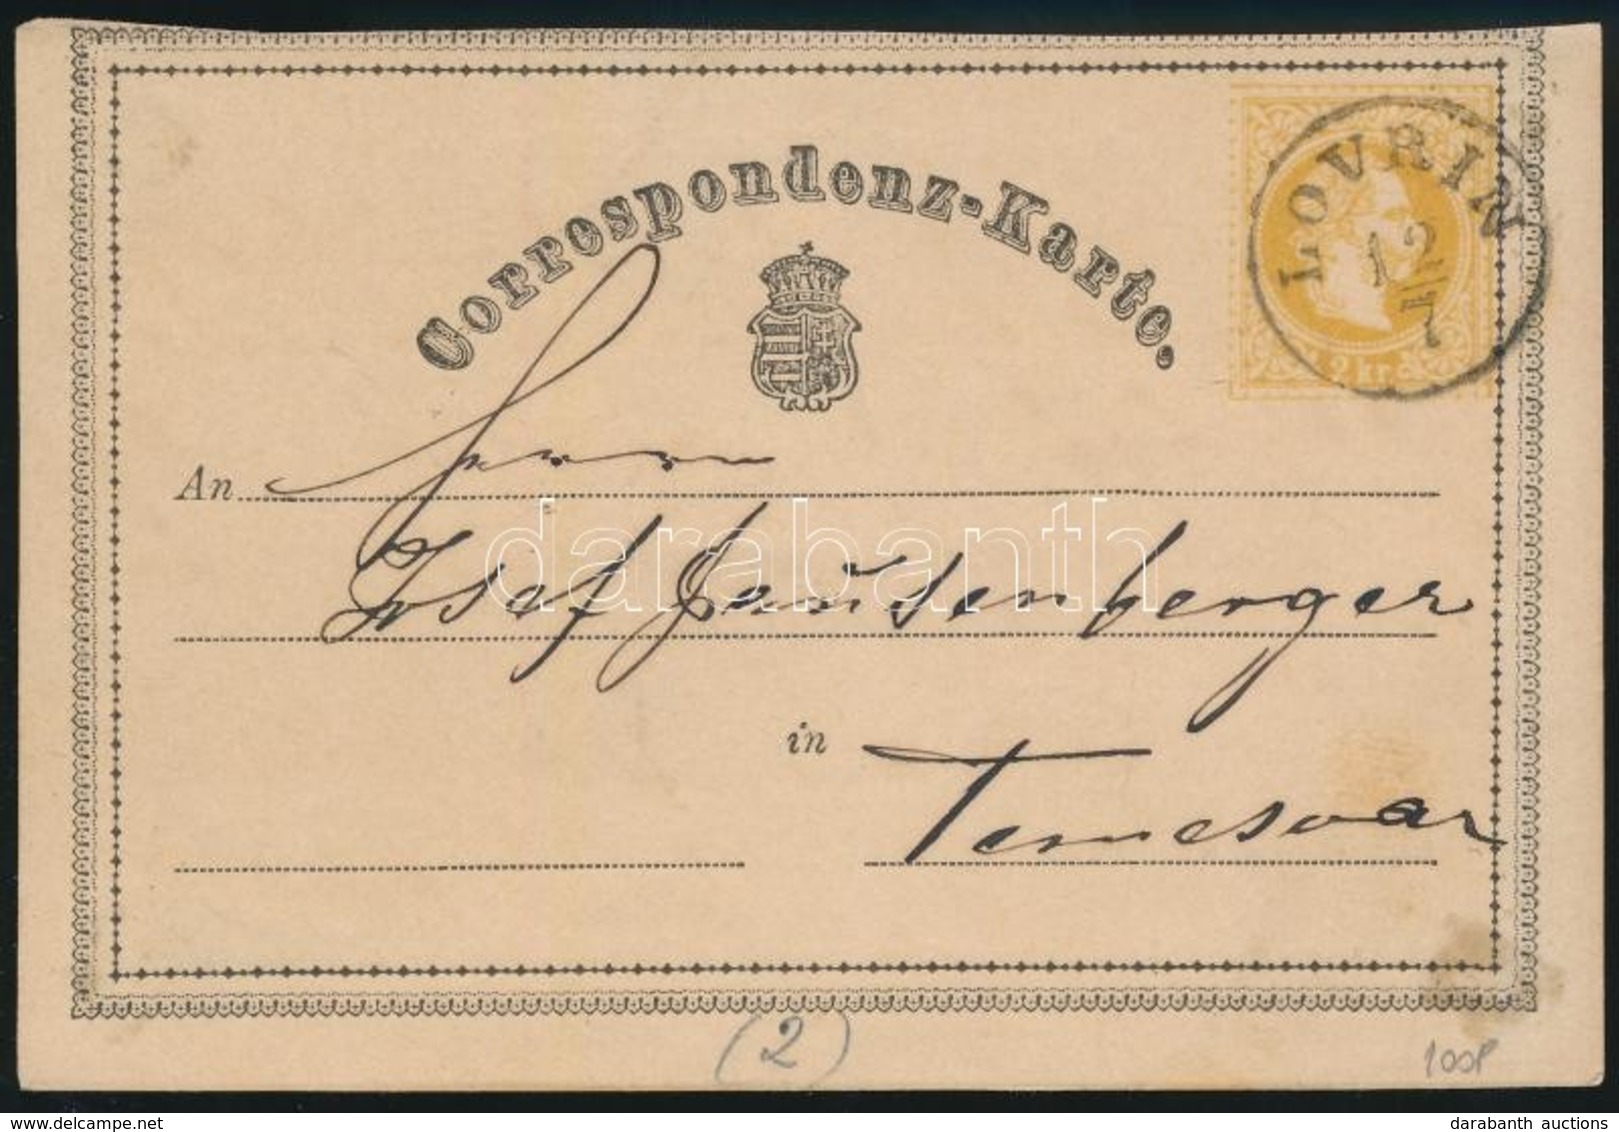 Correspondenz-Karte.
LOVRIN
12
7
2 kr
An Herrn
Josef
in Temesvar
darabanth
(2)
darabanth auctions
www.delcampe.net